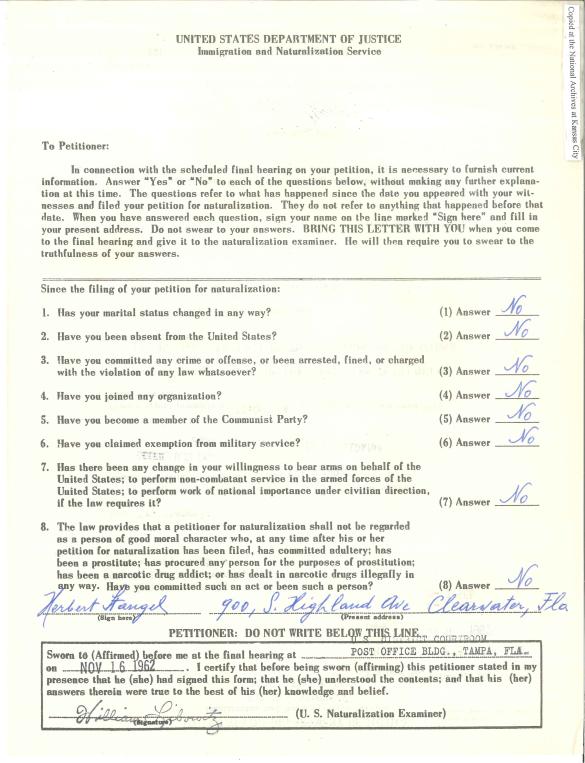 Copied at the National Archives at Kansas City
UNITED STATES DEPARTMENT OF JUSTICE
Immigration and Naturalization Service
To Petitioner:
In connection with the scheduled final hearing on your petition, it is necessary to furnish current
information. Answer "Yes" or "No" to each of the questions below, without making any further explana-
tion at this time. The questions refer to what has happened since the date you appeared with your wit-
nesses and filed your petition for naturalization. They do not refer to anything that happened before that
date. When you have answered each question, sign your name on the line marked "Sign here" and fill in
your present address. Do not swear to your answers. BRING THIS LETTER WITH YOU when you come
to the final hearing and give it to the naturalization examiner. He will then require you to swear to the
truthfulness of your answers.
Since the filing of your petition for naturalization:
1. Has your marital status changed in any way? (1) Answer No
2. Have you been absent from the United States? (2) Answer No
3. Have you committed any crime or offense, or been arrested, fined, or charged
with the violation of any law whatsoever? (3) Answer No
4. Have you joined any organization? (4) Answer No
5. Have you become a member of the Communist Party? (5) Answer No
6. Have you claimed exemption from military service? (6) Answer No
7. Has there been any change in your willingness to bear arms on behalf of the
United States; to perform non-combatant service in the armed forces of the
United States; to perform work of national importance under civilian direction,
if the law requires it? (7) Answer No
8. The law provides that a petitioner for naturalization shall not be regarded
as a person of good moral character who, at any time after his or her
petition for naturalization has been filed, has committed adultery; has
been a prostitute; has procured any person for the purposes of prostitution;
has been a narcotic drug addict; or has dealt in narcotic drugs illegally in
any way. Have you committed such an act or been such a person? (8) Answer No
Herbert Hangel 900, S. Highland Ave Clearwater, Fla
(Sign here) (Present address)
PETITIONER: DO NOT WRITE BELOW THIS LINE.
U.S. DISTRICT COURTROOM
Sworn to (Affirmed) before me at the final hearing at POST OFFICE BLDG., TAMPA, FLA.
on NOV 16 1962. I certify that before being sworn (affirming) this petitioner stated in my
presence that he (she) had signed this form; that he (she) understood the contents; and that his (her)
answers therein were true to the best of his (her) knowledge and belief.
William Libowitz (U. S. Naturalization Examiner)
(Signature)